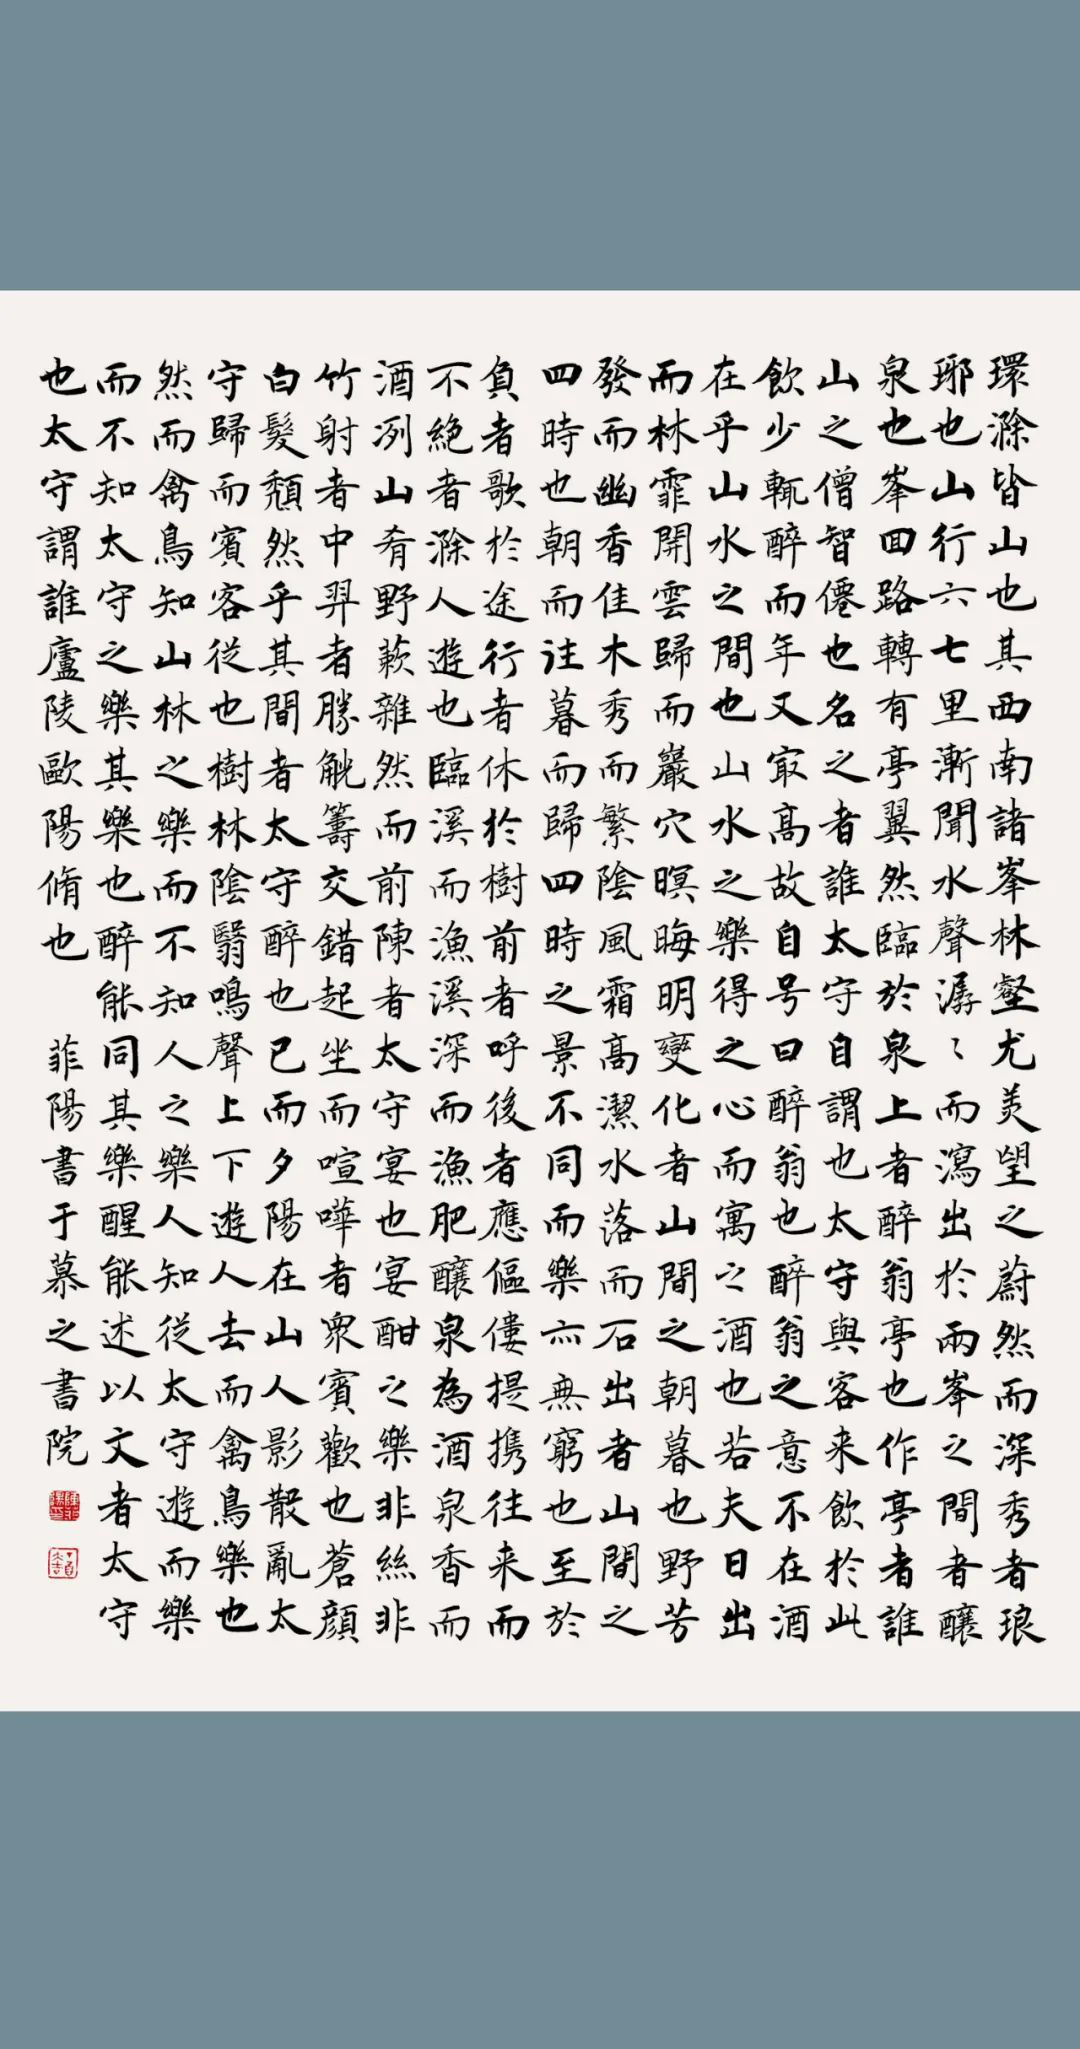 環滁皆山也其西南諸峯林壑尤美望之蔚然而深秀者琅
琊也山行六七里漸聞水聲潺〻而瀉出於兩峯之間者釀
泉也峯回路轉有亭翼然臨於泉上者醉翁亭也作亭者誰
山之僧智僊也名之者誰太守自謂也太守與客来飲於此
飲少輒醉而年又冣高故自号曰醉翁也醉翁之意不在酒
在乎山水之間也山水之樂得之心而寓之酒也若夫日出
而林霏開雲歸而巖穴暝晦明變化者山間之朝暮也野芳
發而幽香佳木秀而繁陰風霜高潔水落而石出者山間之
四時也朝而往暮而歸四時之景不同而樂亦無窮也至於
負者歌於途行者休於樹前者呼後者應傴僂提携往来而
不絕者滁人遊也臨溪而漁溪深而漁肥釀泉為酒泉香而
酒洌山肴野蔌雜然而前陳者太守宴也宴酣之樂非絲非
竹射者中弈者勝觥籌交錯起坐而喧嘩者衆賓歡也蒼顏
白髮頹然乎其間者太守醉也已而夕陽在山人影散亂太
守歸而賓客從也樹林陰翳鳴聲上下遊人去而禽鳥樂也
然而禽鳥知山林之樂而不知人之樂人知從太守遊而樂
而不知太守之樂其樂也醉能同其樂醒能述以文者太守
也太守謂誰廬陵歐陽脩也 菲陽書于慕之書院